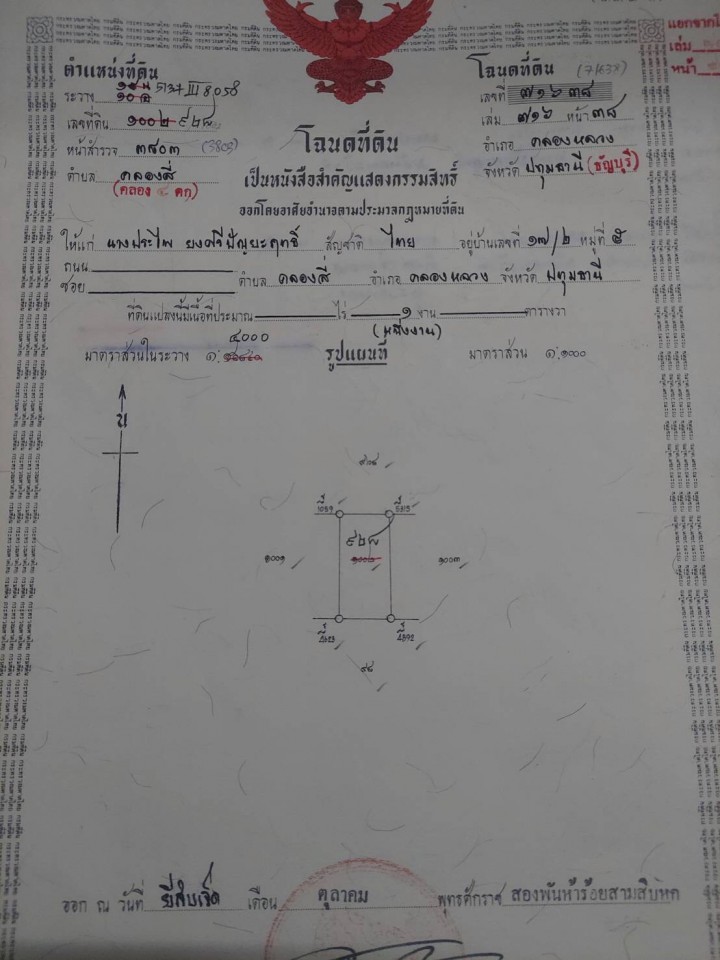 ตำแหน่งที่ดิน
ระวาง 5137 III 8058
๑๐ ฎ
เลขที่ดิน ๑๐๐๒ ๙๒๘
หน้าสำรวจ ๓๙๐๓ (3903)
ตำบล คลองสี่
(คลอง ๔ ตก)
แยกจาก
เล่ม
หน้า
โฉนดที่ดิน (71638)
เลขที่ ๗๑๖๓๘
เล่ม ๗๑๖ หน้า ๓๘
อำเภอ คลองหลวง
จังหวัด ปทุมธานี (ธัญบุรี)
โฉนดที่ดิน
เป็นหนังสือสำคัญแสดงกรรมสิทธิ์
ออกโดยอาศัยอำนาจตามประมวลกฎหมายที่ดิน
ให้แก่ นางประไพ ยงศรีปัญญะฤทธิ์ สัญชาติ ไทย อยู่บ้านเลขที่ ๑๗/๒ หมู่ที่ ๕
ถนน
ซอย ตำบล คลองสี่ อำเภอ คลองหลวง จังหวัด ปทุมธานี
ที่ดินแปลงนี้มีเนื้อที่ประมาณ ไร่ ๑ งาน ตารางวา
(หนึ่งงาน)
๔๐๐๐
มาตราส่วนในระวาง ๑: รูปแผนที่ มาตราส่วน ๑:๑๐๐๐
น
๙๒๘
๑๐๐๑ ๑๐๐๒ ๑๐๐๓
๙๘
ออก ณ วันที่ ยี่สิบเจ็ด เดือน ตุลาคม พุทธศักราช สองพันห้าร้อยสามสิบหก